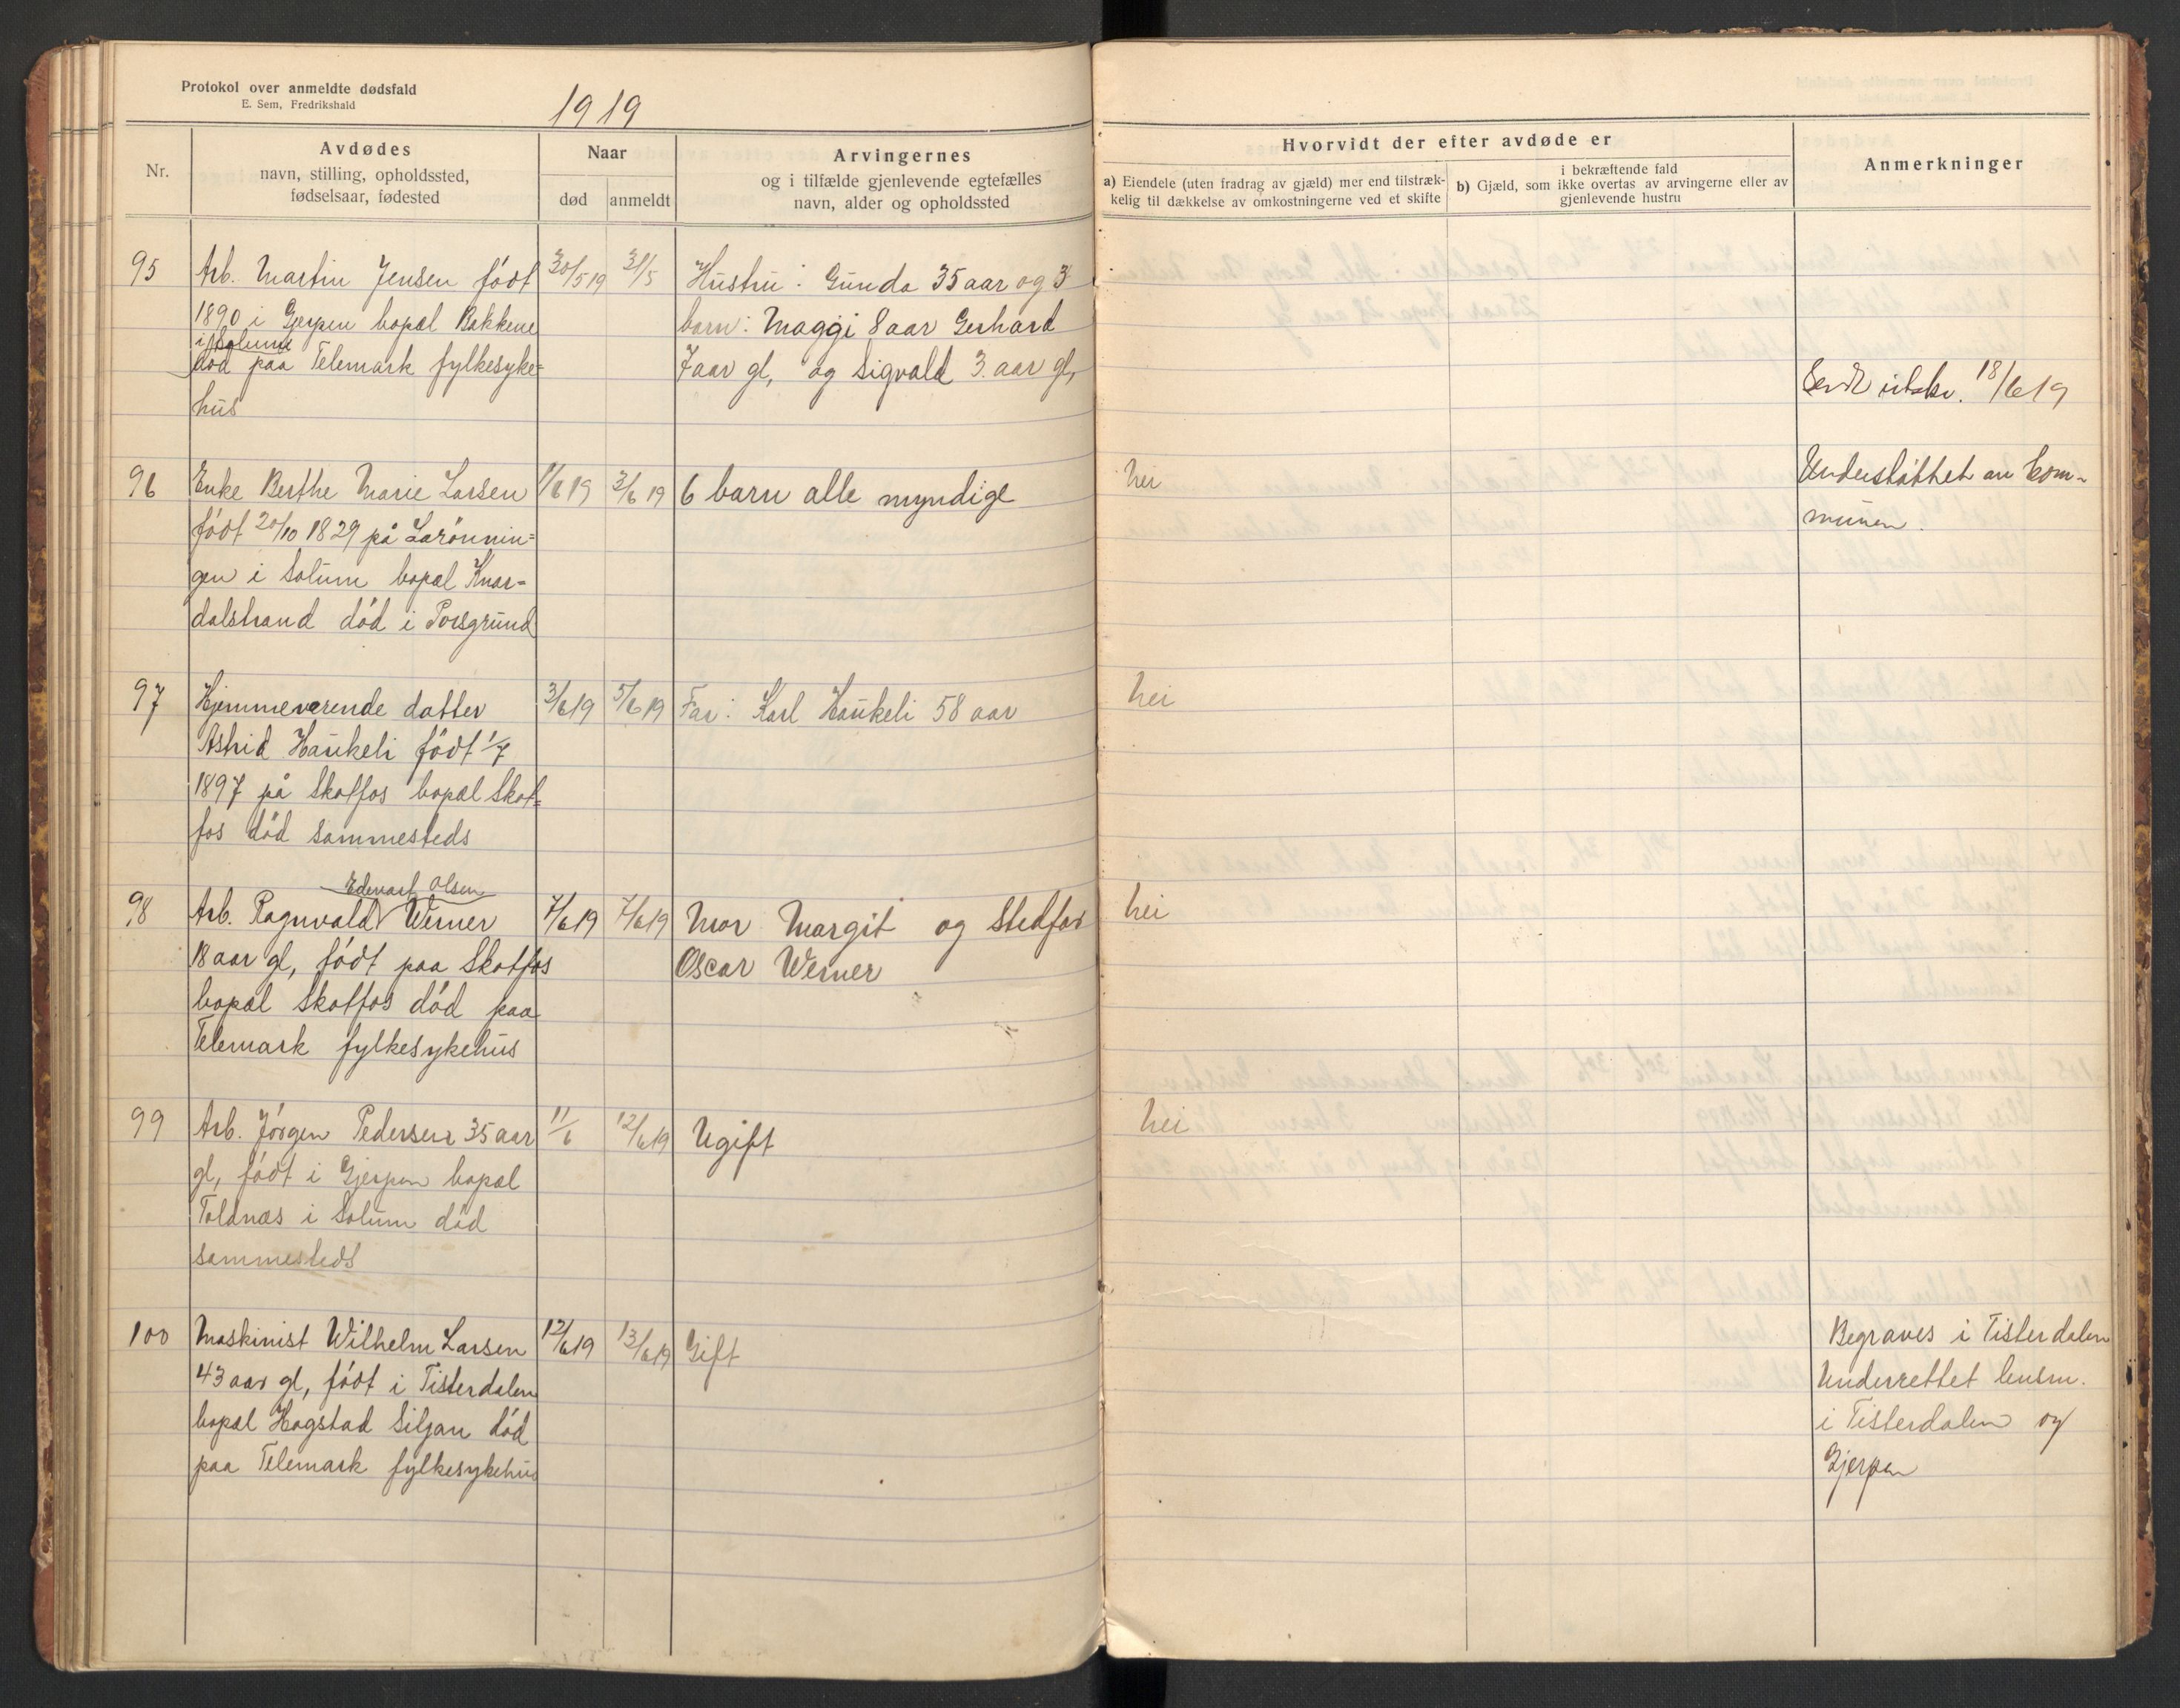 Protokol over anmeldte dødsfald
E. Sem, Fredrikshald
1919
Nr.
Avdødes
navn, stilling, opholdssted,
fødselsaar, fødested
Naar
død
anmeldt
Arvingernes
og i tilfælde gjenlevende egtefælles
navn, alder og opholdssted
Hvorvidt der efter avdøde er
a) Eiendele (uten fradrag av gjæld) mer end tilstræk-
kelig til dækkelse av omkostningerne ved et skifte
i bekræftende fald
b) Gjæld, som ikke overtas av arvingerne eller av
gjenlevende hustru
Anmerkninger
95
Arb. Martin Jensen født
1890 i Gjerpen bopæl Bakkene
i Solum
død paa Telemark fylkesyke=
hus
30/5 19
31/5
Hustru: Gunda 35 aar og 3
barn: Maggi 8 aar Gerhard
7 aar gl, og Sigvald 3. aar gl,
Sendt 18/6 19
96
Enke Berthe Marie Larsen
født 20/10 1829 på Larönnin=
gen i Solum bopæl Knar=
dalstrand död i Porsgrund
1/6 19
3/6 19
6 barn alle myndige
Nei
Understöttet av kom-
munen.
97
Hjemmeværende datter
Astrid Haukeli födt 1/7
1897 på Skotfos bopæl Skot=
fos död sammesteds
3/6 19
5/6 19
Far: Karl Haukeli 58 aar
Nei
98
Edvart Olsen
Arb. Ragnvald Werner
18 aar gl, födt paa Skotfos
bopæl Skotfos död paa
Telemark fylkesykehus
7/6 19
7/6 19
Mor Margit og Stedfar
Oscar Werner
Nei
99
Arb. Jörgen Pedersen 35 aar
gl, födt i Gjerpen bopæl
Toldnæs i Solum död
sammesteds
11/6
12/6 19
Ugift
Nei
100
Maskinist Wilhelm Larsen
43 aar gl, födt i Tisterdalen
bopæl Hogstad Siljan död
paa Telemark fylkesykehus
12/6 19
13/6 19
Gift
Begraves i Tisterdalen
Underrettet lensm.
i Tisterdalen og
Gjerpen